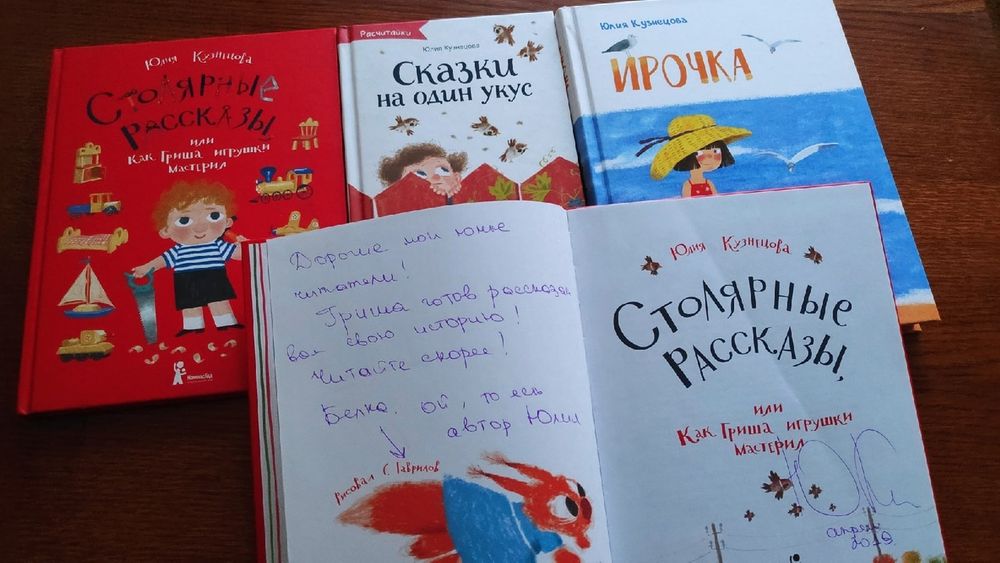 Юлия Кузнецова
Столярные
рассказы,
или
Как Гриша игрушки
мастерил
КомпасГид
Расчитайки
Юлия Кузнецова
Сказки
на один укус
Юлия Кузнецова
ИРОЧКА
Дорогие мои юные
читатели!
Гриша готов рассказать
вам свою историю!
Читайте скорее!
Белка. Ой, то есть
автор Юлия
рисовал С. Гаврилов
Юлия Кузнецова
Столярные
рассказы,
или
Как Гриша игрушки
мастерил
апрель
2019